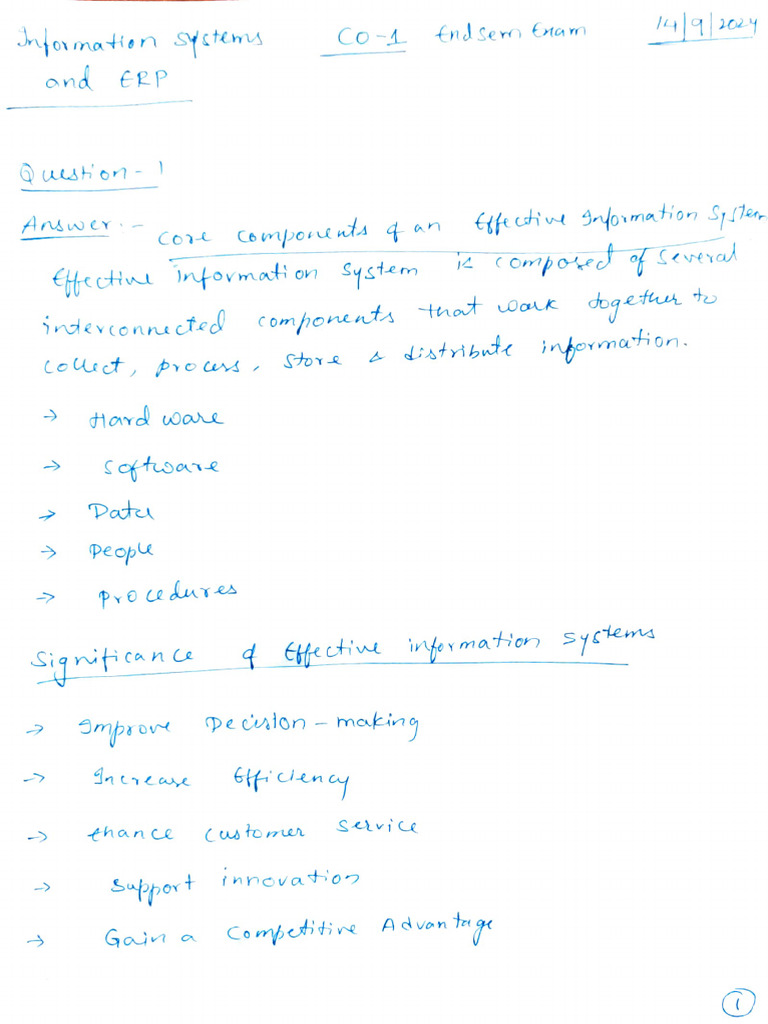 Information Systems CO-1 Endsem Exam 14/9/2024
and ERP
Question-1
Answer:- core components of an Effective Information System
Effective information system is composed of several
interconnected components that work together to
collect, process, store & distribute information.
→ Hardware
→ Software
→ Data
→ People
→ Procedures
Significance of Effective information systems
→ Improve Decision-making
→ Increase Efficiency
→ Ehance customer service
→ Support innovation
→ Gain a Competitive Advantage
1